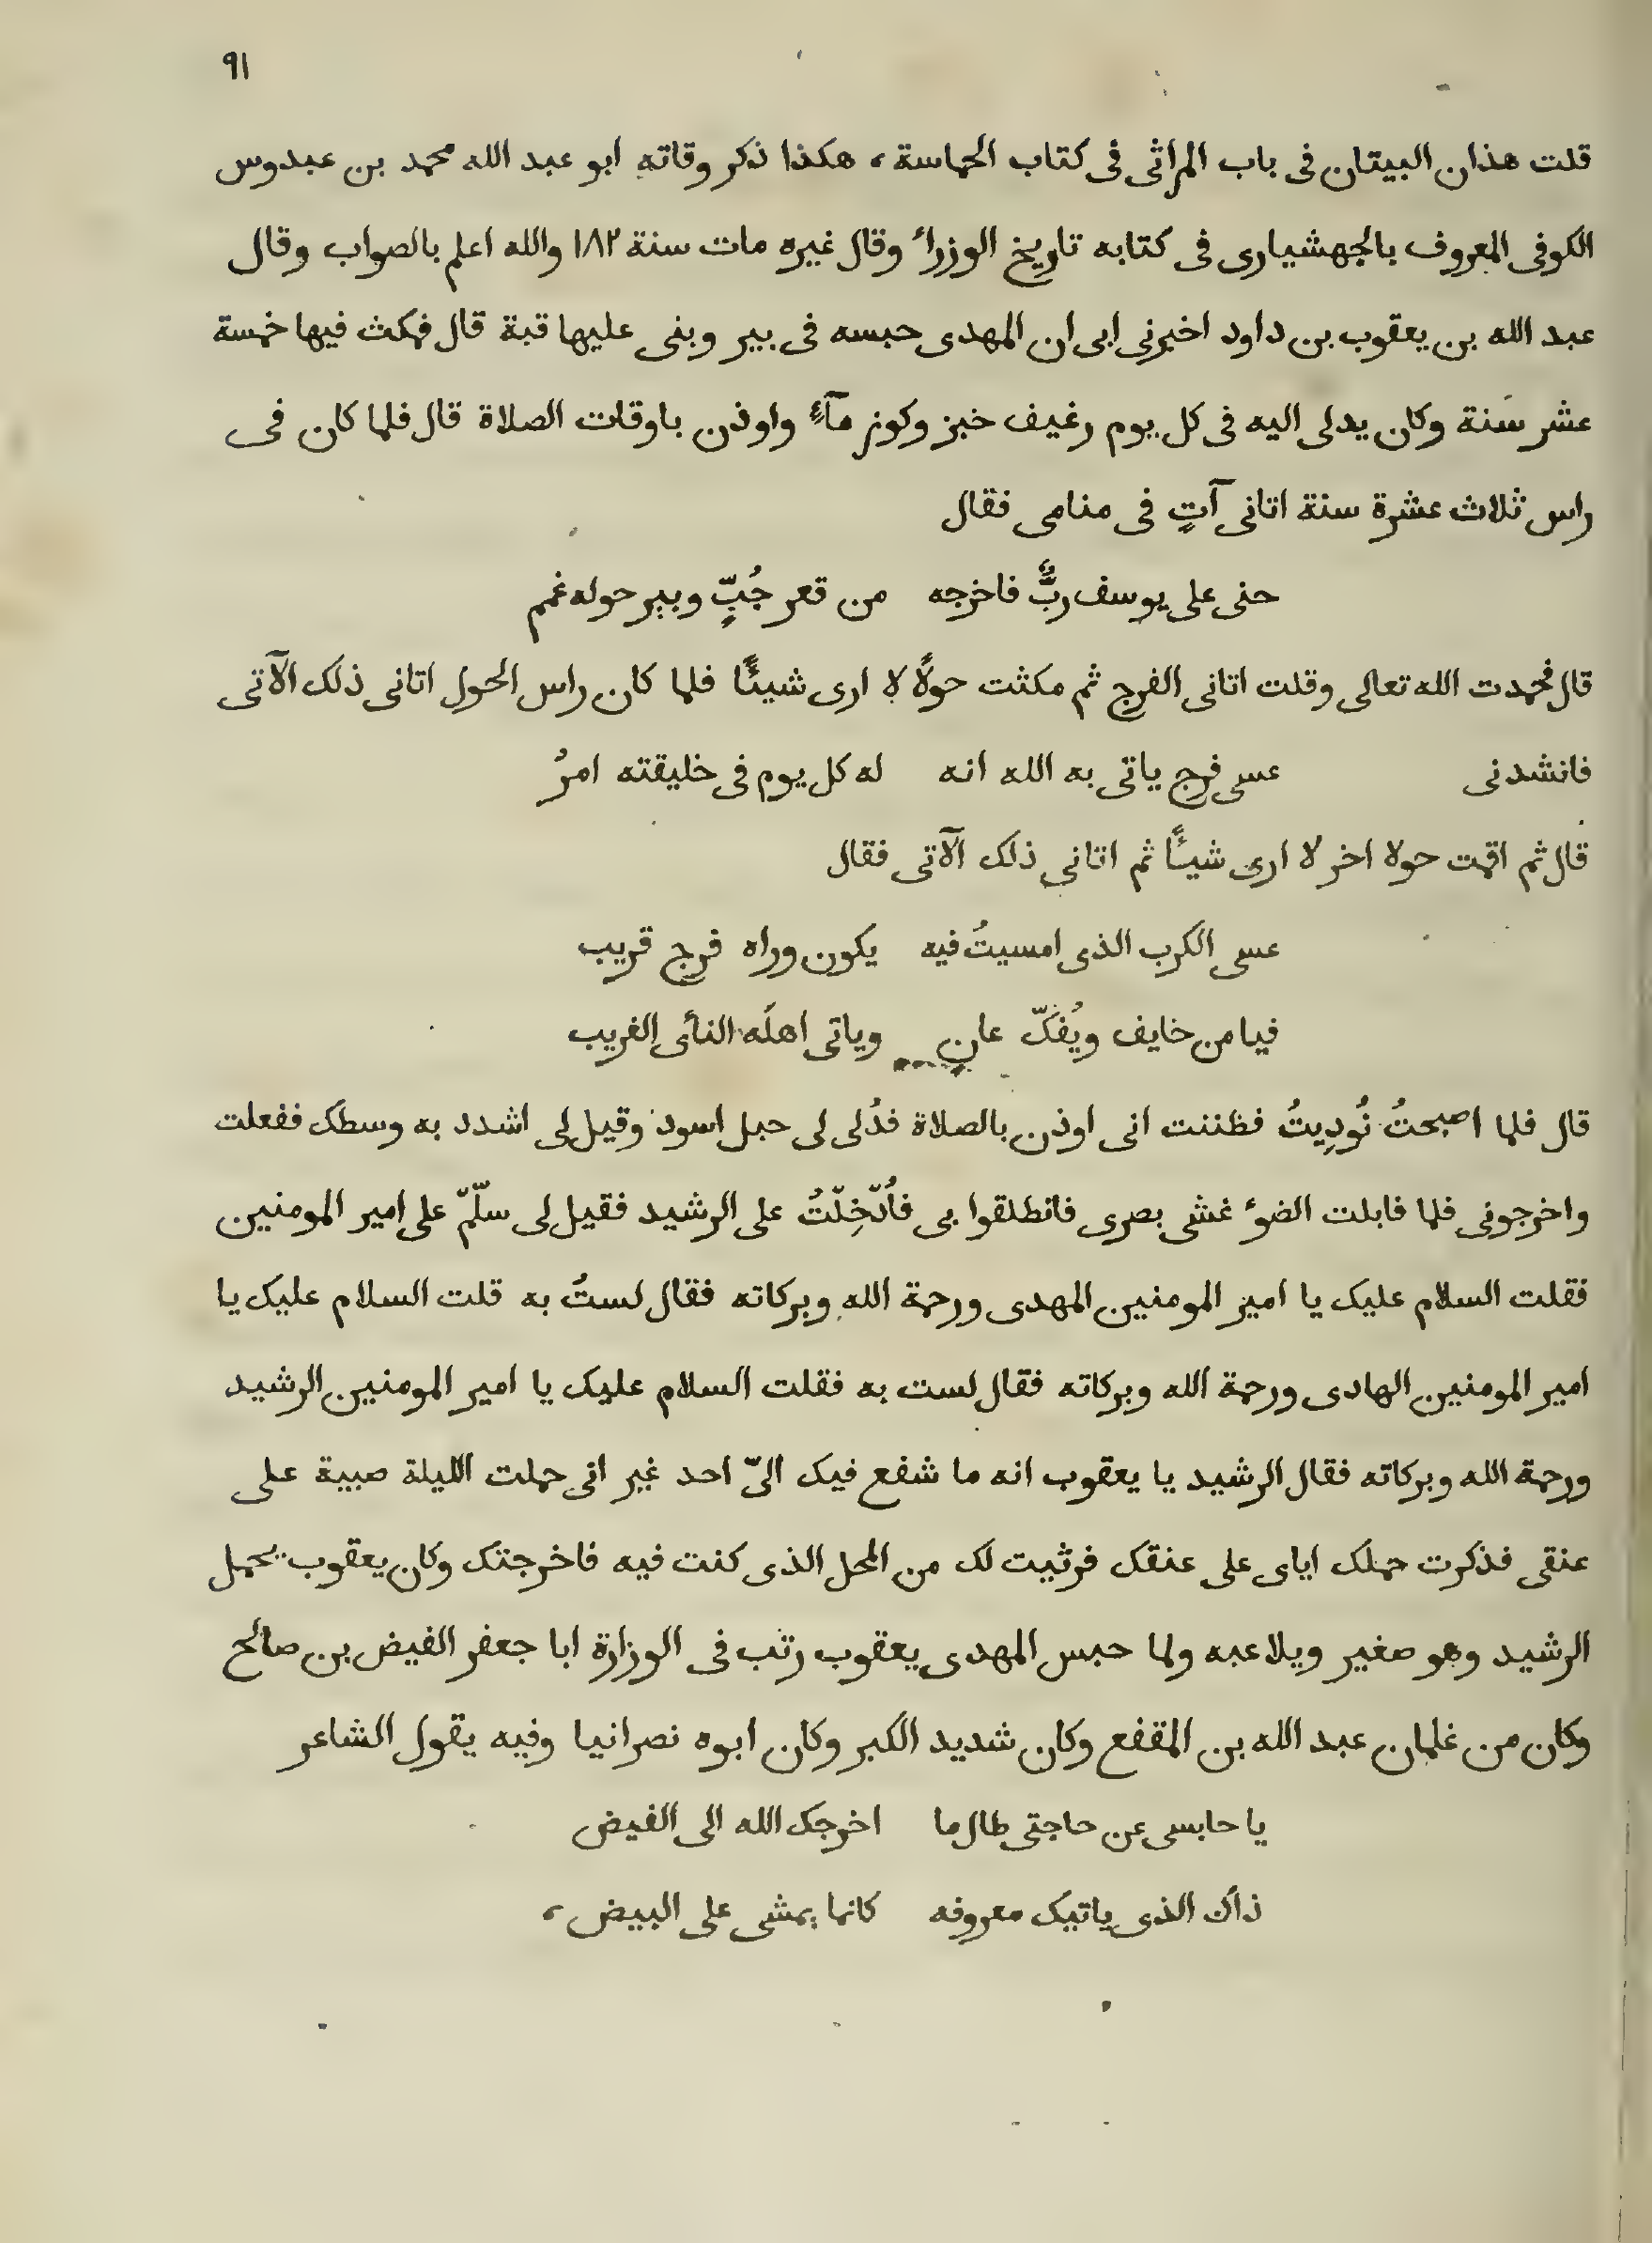 ٩١
قلت هذان البيتان فى باب المراثى فى كتاب الحماسة، هكذا ذكر وقاته ابو عبد الله محمد بن عبدوس
الكوفى المعروف بالجهشيارى فى كتابه تاريخ الوزراء وقال غيره مات سنة ١٨٢ والله اعلم بالصواب وقال
عبد الله بن يعقوب بن داود اخبرنى ابى ان المهدى حبسه فى بير وبنى عليها قبة قال فمكث فيها خمسة
عشر سَنة وكان يدلى اليه فى كل يوم رغيف خبز وكوز مآءٍ واوذن باوقات الصلاة قال فلما كان فى
راس ثلاث عشرة سنة اتانى آتٍ فى منامى فقال
حنى على يوسف ربٌّ فاخرجه من قعر جُبٍّ وبير حوله غمم
قال فحمدت الله تعالى وقلت اتانى الفرج ثم مكثت حولًا لا ارى شيئًا فلما كان راس الحول اتانى ذلك الآتى
فانشدنى عسى فرج ياتى به الله انه له كل يوم فى خليقته امرُ
قال ثم اقمت حولا اخر لا ارى شيئًا ثم اتانى ذلك الآتى فقال
عسى الكرب الذى امسيتُ فيه يكون وراه فرج قريب
فيامن خايف ويُفكّ عانٍ وياتى اهلَه النأى الغريب
قال فلما اصبحتُ نُودِيتُ فظننت انى اوذن بالصلاة فدُلى لى حبل اسود وقيل لى اشدد به وسطك ففعلت
واخرجونى فلما قابلت الضوء غشى بصرى فانطلقوا بى فأُدّخِلّتُ على الرشيد فقيل لى سلّمّ على امير المومنين
فقلت السلام عليك يا امير المومنين المهدى ورحمة الله وبركاته فقال لستُ به قلت السلام عليك يا
امير المومنين الهادى ورحمة الله وبركاته فقال لست به فقلت السلام عليك يا امير المومنين الرشيد
ورحمة الله وبركاته فقال الرشيد يا يعقوب انه ما شفع فيك الىّ احد غير انى حملت الليلة صبية على
عنقى فذكرت حملك اياى على عنقك فرثيت لك من المحل الذى كنت فيه فاخرجتك وكان يعقوب يحمل
الرشيد وهو صغير ويلاعبه ولما حبس المهدى يعقوب رتب فى الوزارة ابا جعفر الفيض بن صالح
وكان من غلمان عبد الله بن المقفع وكان شديد الكبر وكان ابوه نصرانيا وفيه يقول الشاعر
يا حابسى عن حاجتى طال ما اخرجك الله الى الفيض
ذاك الذى ياتيك معروفه كانما يمشى على البيض،